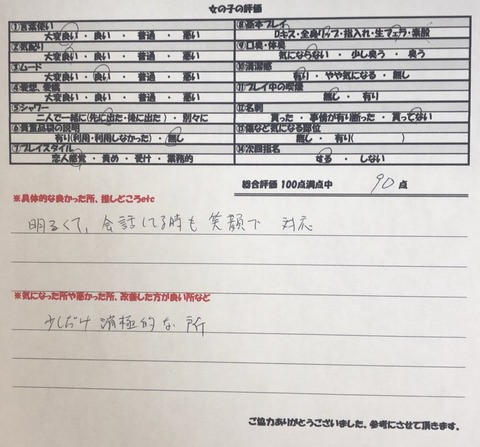 女の子の評価
①言葉使い
大変良い ・ 良い ・ 普通 ・ 悪い
②気配り
大変良い ・ 良い ・ 普通 ・ 悪い
③ムード
大変良い ・ 良い ・ 普通 ・ 悪い
④愛想、愛嬌
大変良い ・ 良い ・ 普通 ・ 悪い
⑤シャワー
二人で一緒に(先に出た・後に出た) ・ 別々に
⑥貴重品袋の説明
有り(利用・利用しなかった) ・ 無し
⑦プレイスタイル
恋人感覚 ・ 責め ・ 受け ・ 業務的
⑧基本プレイ
Dキス・全身リップ・指入れ・生フェラ・素股
⑨口臭・体臭
気にならない ・ 少し臭う ・ 臭う
⑩清潔感
有り ・ やや気になる ・ 無し
⑪プレイ中の喫煙
無し ・ 有り
⑫名刺
貰った ・ 事情が有り断った ・ 貰ってない
⑬傷など気になる部位
無し ・ 有り( )
⑭次回指名
する ・ しない
総合評価 100点満点中 90 点
※具体的な良かった所、推しどころetc
明るくて、会話してる時も 笑顔で 対応
※気になった所や悪かった所、改善した方が良い所など
少しだけ 消極的な 所
ご協力ありがとうございました。参考にさせて頂きます。